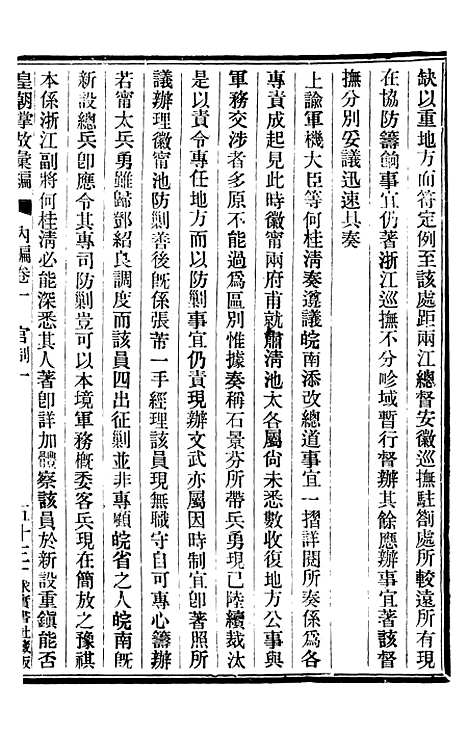 缺以重地方而符定例至該處距兩江總督安徽巡撫駐劄處所較遠所有現
在協防籌餉事宜仍著浙江巡撫不分畛域暫行督辦其餘應辦事宜著該督
撫分別妥議迅速具奏
上諭軍機大臣等何桂清奏遵議皖南添改總道事宜一摺詳閱所奏係為各
專責成起見此時徽甯兩府甫就肅清池太各屬尚未悉數收復地方公事與
軍務交涉者多原不能過為區別惟據奏稱石景芬所帶兵勇現已陸續裁汰
是以責令專任地方而以防剿事宜仍責現辦文武亦屬因時制宜卽著照所
議辦理徽甯池防剿善後旣係張芾一手經理該員現無職守自可專心籌辦
若甯太兵勇雖歸鄧紹良調度而該員四出征剿並非專顧皖省之人皖南旣
新設總兵卽應令其專司防剿豈可以本境軍務槪委客兵現在簡放之豫祺
本係浙江副將何桂清必能深悉其人著卽詳加體察該員於新設重鎮能否
皇朝掌故彙編 內編卷一 官制一 五十二 求實書社藏版